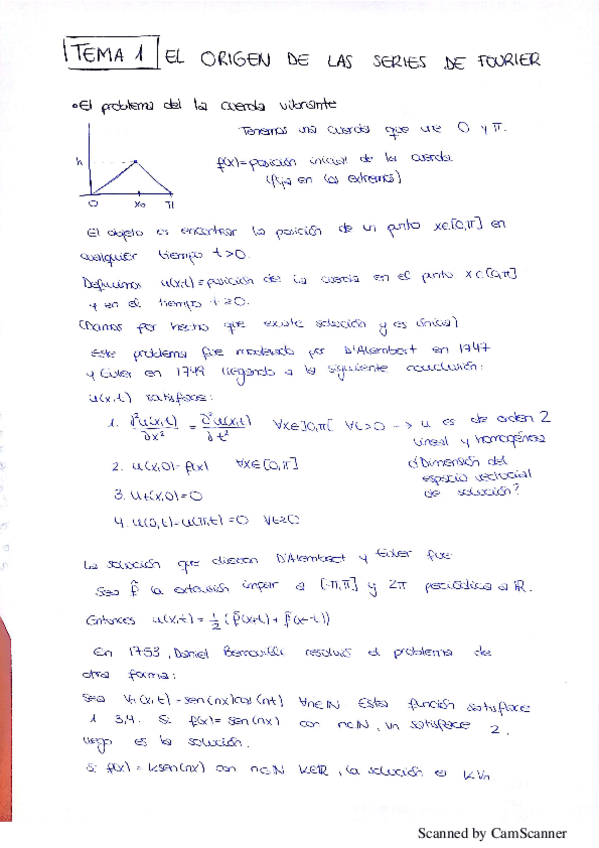 TEMA 1 EL ORIGEN DE LAS SERIES DE FOURIER
• El problema del la cuerda vibrante
Tenemos una cuerda que une 0 y π.
h
f(x)=posición inicial de la cuerda
(fija en los extremos)
0 x₀ π
El objeto es encontrar la posición de un punto x∈[0,π] en
cualquier tiempo t>0.
Definimos u(x,t)=posición de la cuerda en el punto x∈[0,π]
y en el tiempo t≥0.
(Damos por hecho que existe solución y es única)
Este problema fue modelado por D'Alembert en 1747
y Euler en 1749 llegando a la siguiente conclusión:
u(x,t) satisface:
1. ∂²u(x,t)/∂x² = ∂²u(x,t)/∂t² ∀x∈]0,π[ ∀t>0 --> u es de orden 2
lineal y homogénea
2. u(x,0)=f(x) ∀x∈[0,π]
¿Dimensión del
espacio vectorial
de solución?
3. ut(x,0)=0
4. u(0,t)=u(π,t)=0 ∀t≥0
La solución que dieron D'Alembert y Euler fue:
Sea f̃ la extensión impar a [-π,π] y 2π periódica a ℝ.
Entonces u(x,t) = 1/2 (f̃(x+t) + f̃(x-t))
En 1753, Daniel Bernouilli resolvió el problema de
otra forma:
Sea Vn(x,t)=sen(nx)cos(nt) ∀n∈ℕ Esta función satisface
1 3,4. Si f(x)= sen(nx) con n∈ℕ, vn satisface 2,
luego es la solución.
Si f(x) = K sen(nx) con n∈ℕ K∈ℝ, la solución es K Vn
Scanned by CamScanner